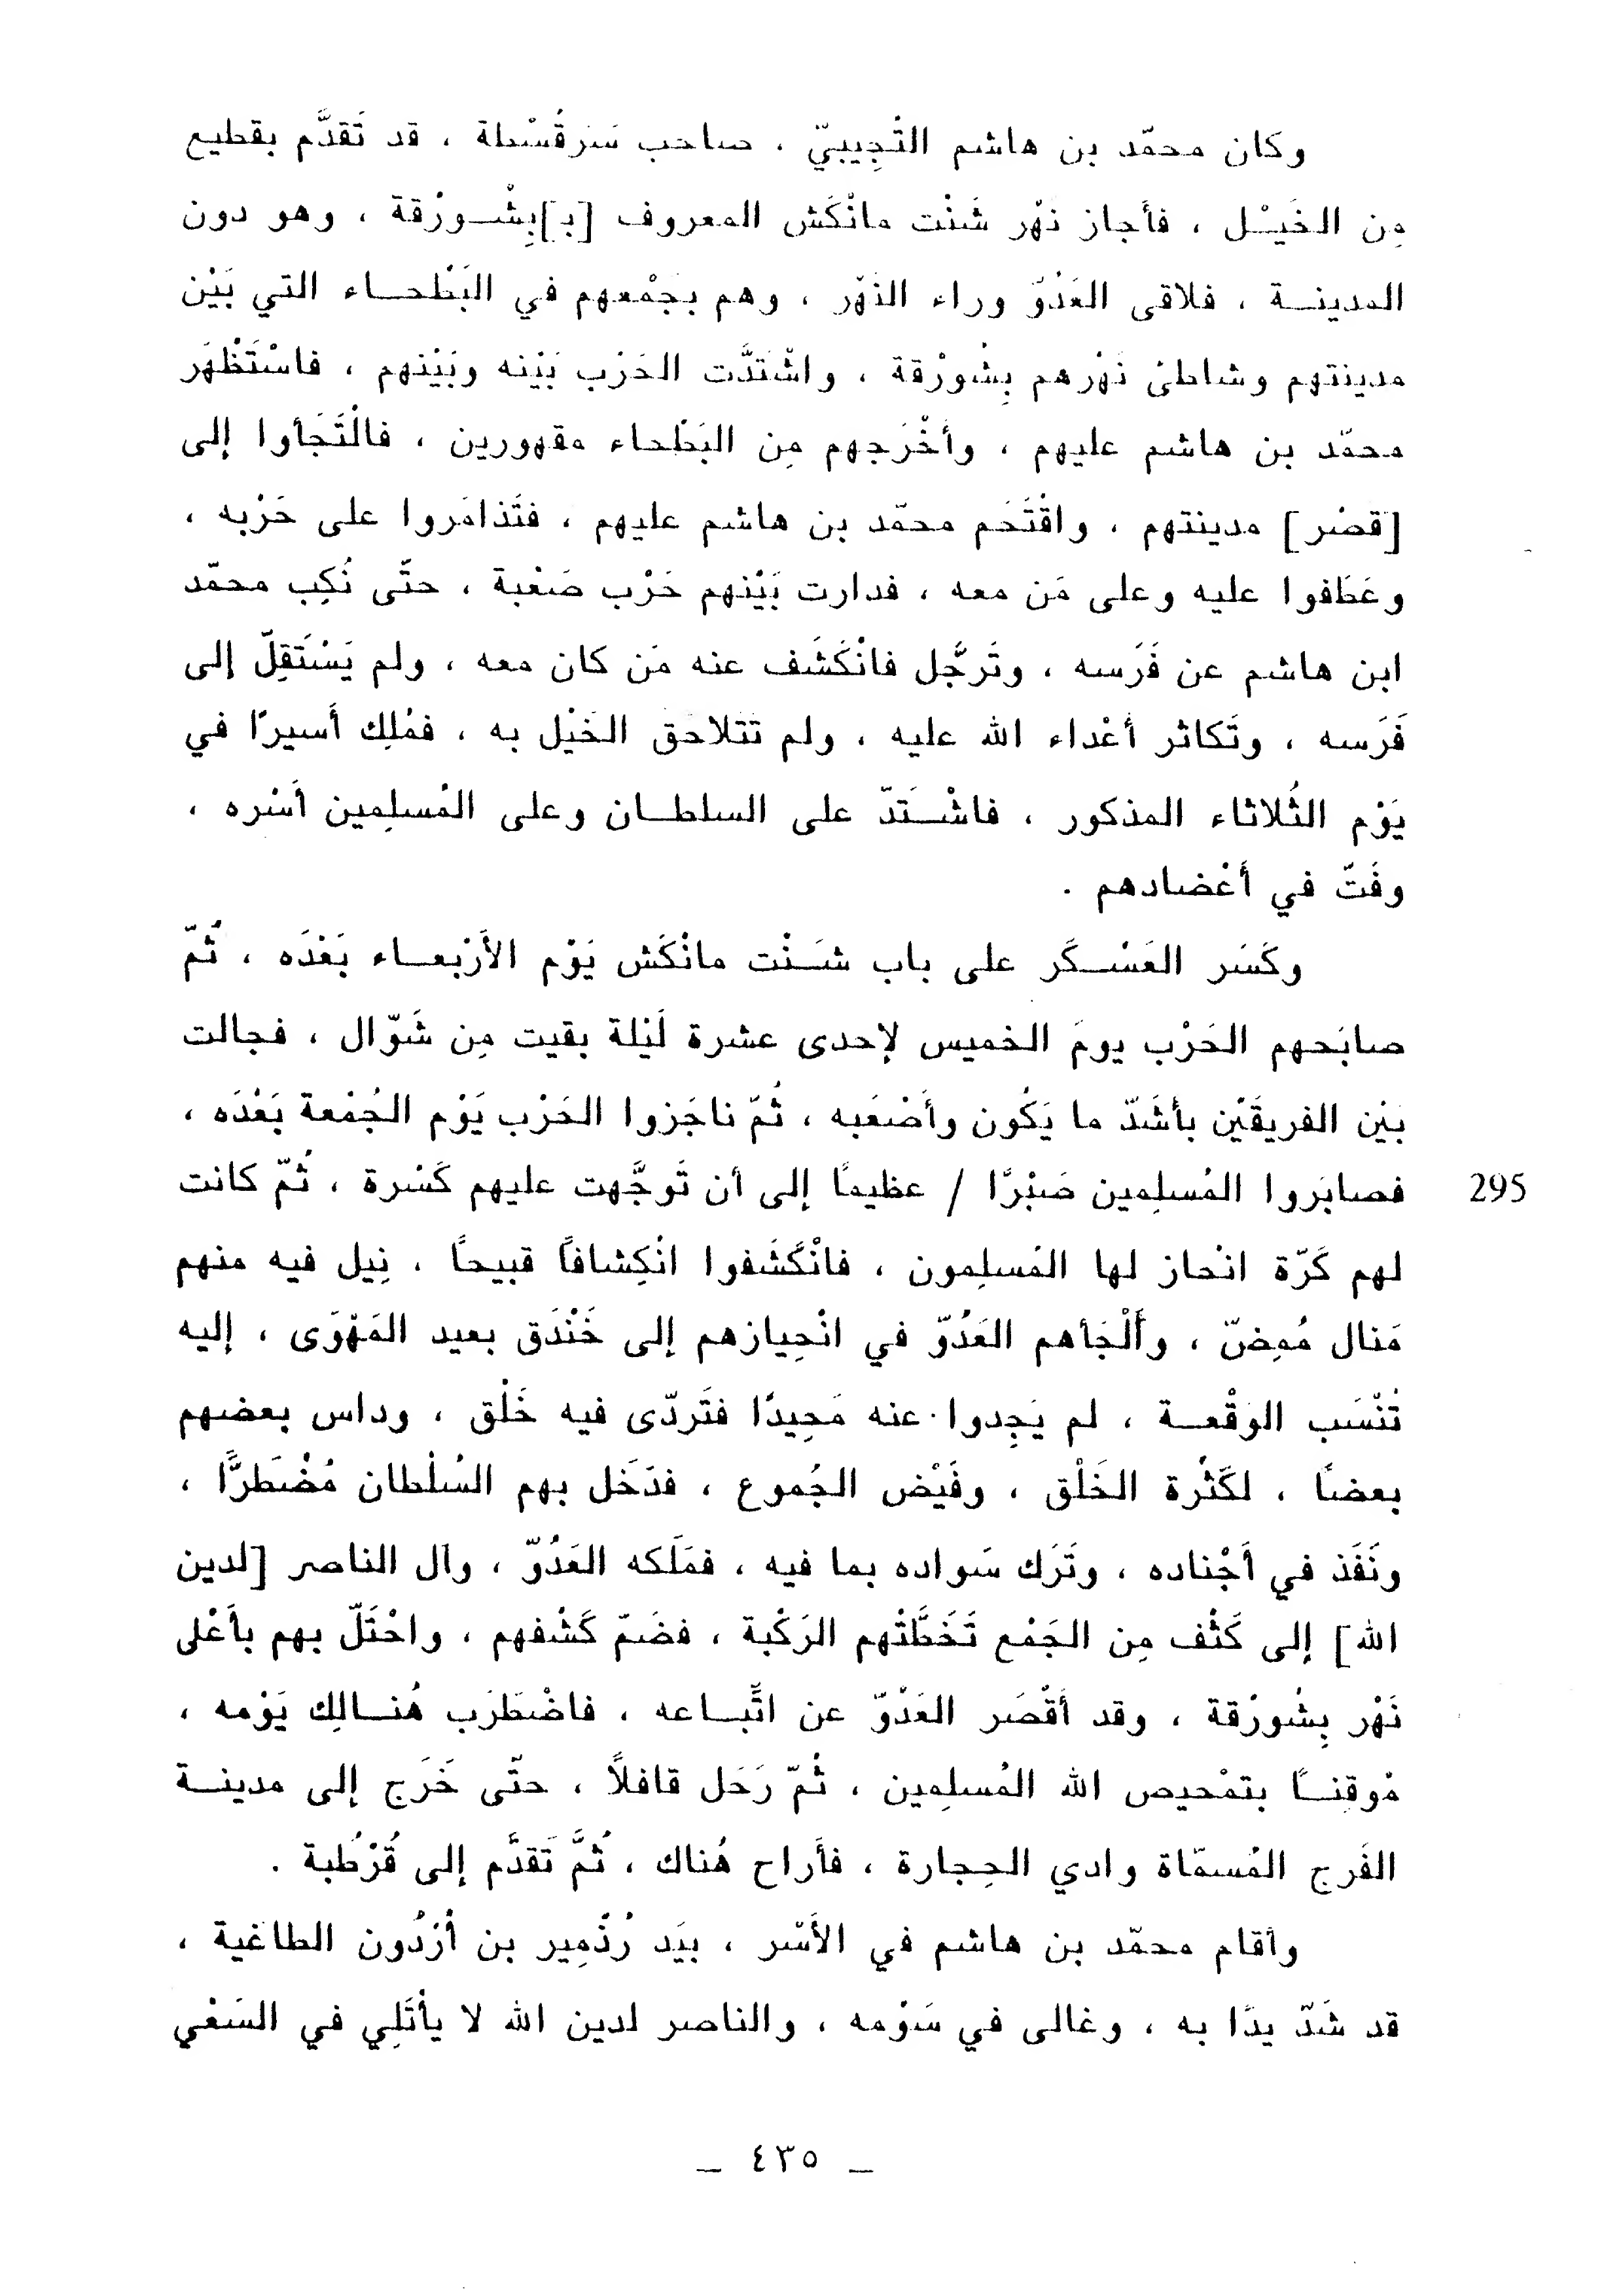 وكان محمّد بن هاشم التُجِيبيّ ، صاحب سَرَقُسْطة ، قد تَقدَّم بقطيع
مِن الخَيْل ، فأجاز نهْر شَنْت مانْكَش المعروف [بـ]بِشُورْقة ، وهو دون
المدينة ، فلاقى العَدُوّ وراء النهْر ، وهم بجَمْعهم في البَطْحاء التي بَيْن
مدينتهم وشاطئ نَهْرهم بِشُورْقة ، واشْتدَّت الحَرْب بَيْنه وبَيْنهم ، فاسْتَظْهَر
محمّد بن هاشم عليهم ، وأخْرَجهم مِن البَطْحاء مقهورين ، فالْتَجَأوا إلى
[قصْر] مدينتهم ، واقْتَحَم محمّد بن هاشم عليهم ، فتَذامَروا على حَرْبه ،
وعَطَفوا عليه وعلى مَن معه ، فدارت بَيْنهم حَرْب صَعْبة ، حتّى نُكِب محمّد
ابن هاشم عن فَرَسه ، وتَرجَّل فانْكَشَف عنه مَن كان معه ، ولم يَسْتَقِلّ إلى
فَرَسه ، وتَكاثر أعْداء الله عليه ، ولم تتلاحَق الخَيْل به ، فمُلِك أسيرًا في
يَوْم الثُلاثاء المذكور ، فاشْتَدّ على السلطان وعلى المُسلِمين أسْره ،
وفَتّ في أعْضادهم .
وكَسَر العَسْكَر على باب شَنْت مانْكَش يَوْم الأَرْبعاء بَعْدَه ، ثُمّ
صابَحهم الحَرْب يومَ الخميس لإحدى عشرة لَيْلة بقيت مِن شَوّال ، فجالت
بَيْن الفريقَيْن بأشَدّ ما يَكُون وأصْعَبه ، ثُمّ ناجَزوا الحَرْب يَوْم الجُمْعة بَعْدَه ،
فصابَروا المُسلِمين صَبْرًا / عظيمًا إلى أن تَوجَّهت عليهم كَسْرة ، ثُمّ كانت
295
لهم كَرّة انْحاز لها المُسلِمون ، فانْكَشَفوا انْكِشافاً قبيحاً ، نِيل فيه منهم
مَنال مُمِضّ ، وأَلْجَأهم العَدُوّ في انْحِيازهم إلى خَنْدَق بعيد المَهْوَى ، إليه
تُنْسَب الوَقْعة ، لم يَجِدوا عنه مَحِيدًا فتَردّى فيه خَلْق ، وداس بعضهم
بعضًا ، لكَثْرة الخَلْق ، وفَيْض الجُموع ، فدَخَل بهم السُلْطان مُضْطَرًّا ،
ونَفَذ في أَجْناده ، وتَرَك سَواده بما فيه ، فمَلَكه العَدُوّ ، وآل الناصر [لدين
الله] إلى كَثْف مِن الجَمْع تَخَطَّتْهم الرَكْبة ، فضَمّ كَشْفهم ، واحْتَلّ بهم بأَعْلى
نَهْر بِشُورْقة ، وقد أَقْصَر العَدْوّ عن اتِّباعه ، فاضْطَرَب هُنالِك يَوْمه ،
مُوقِناً بتمْحيص الله المُسلِمين ، ثُمّ رَحَل قافلاً ، حتّى خَرَج إلى مدينة
الفَرج المُسمّاة وادي الحِجارة ، فأَراح هُناك ، ثُمَّ تَقدَّم إلى قُرْطُبة .
وأقام محمّد بن هاشم في الأَسْر ، بيَد رُذْمِير بن أُرْدُون الطاغية ،
قد شَدّ يدًا به ، وغالى في سَوْمه ، والناصر لدين الله لا يأْتَلِي في السَعْي
_ ٤٣٥ _